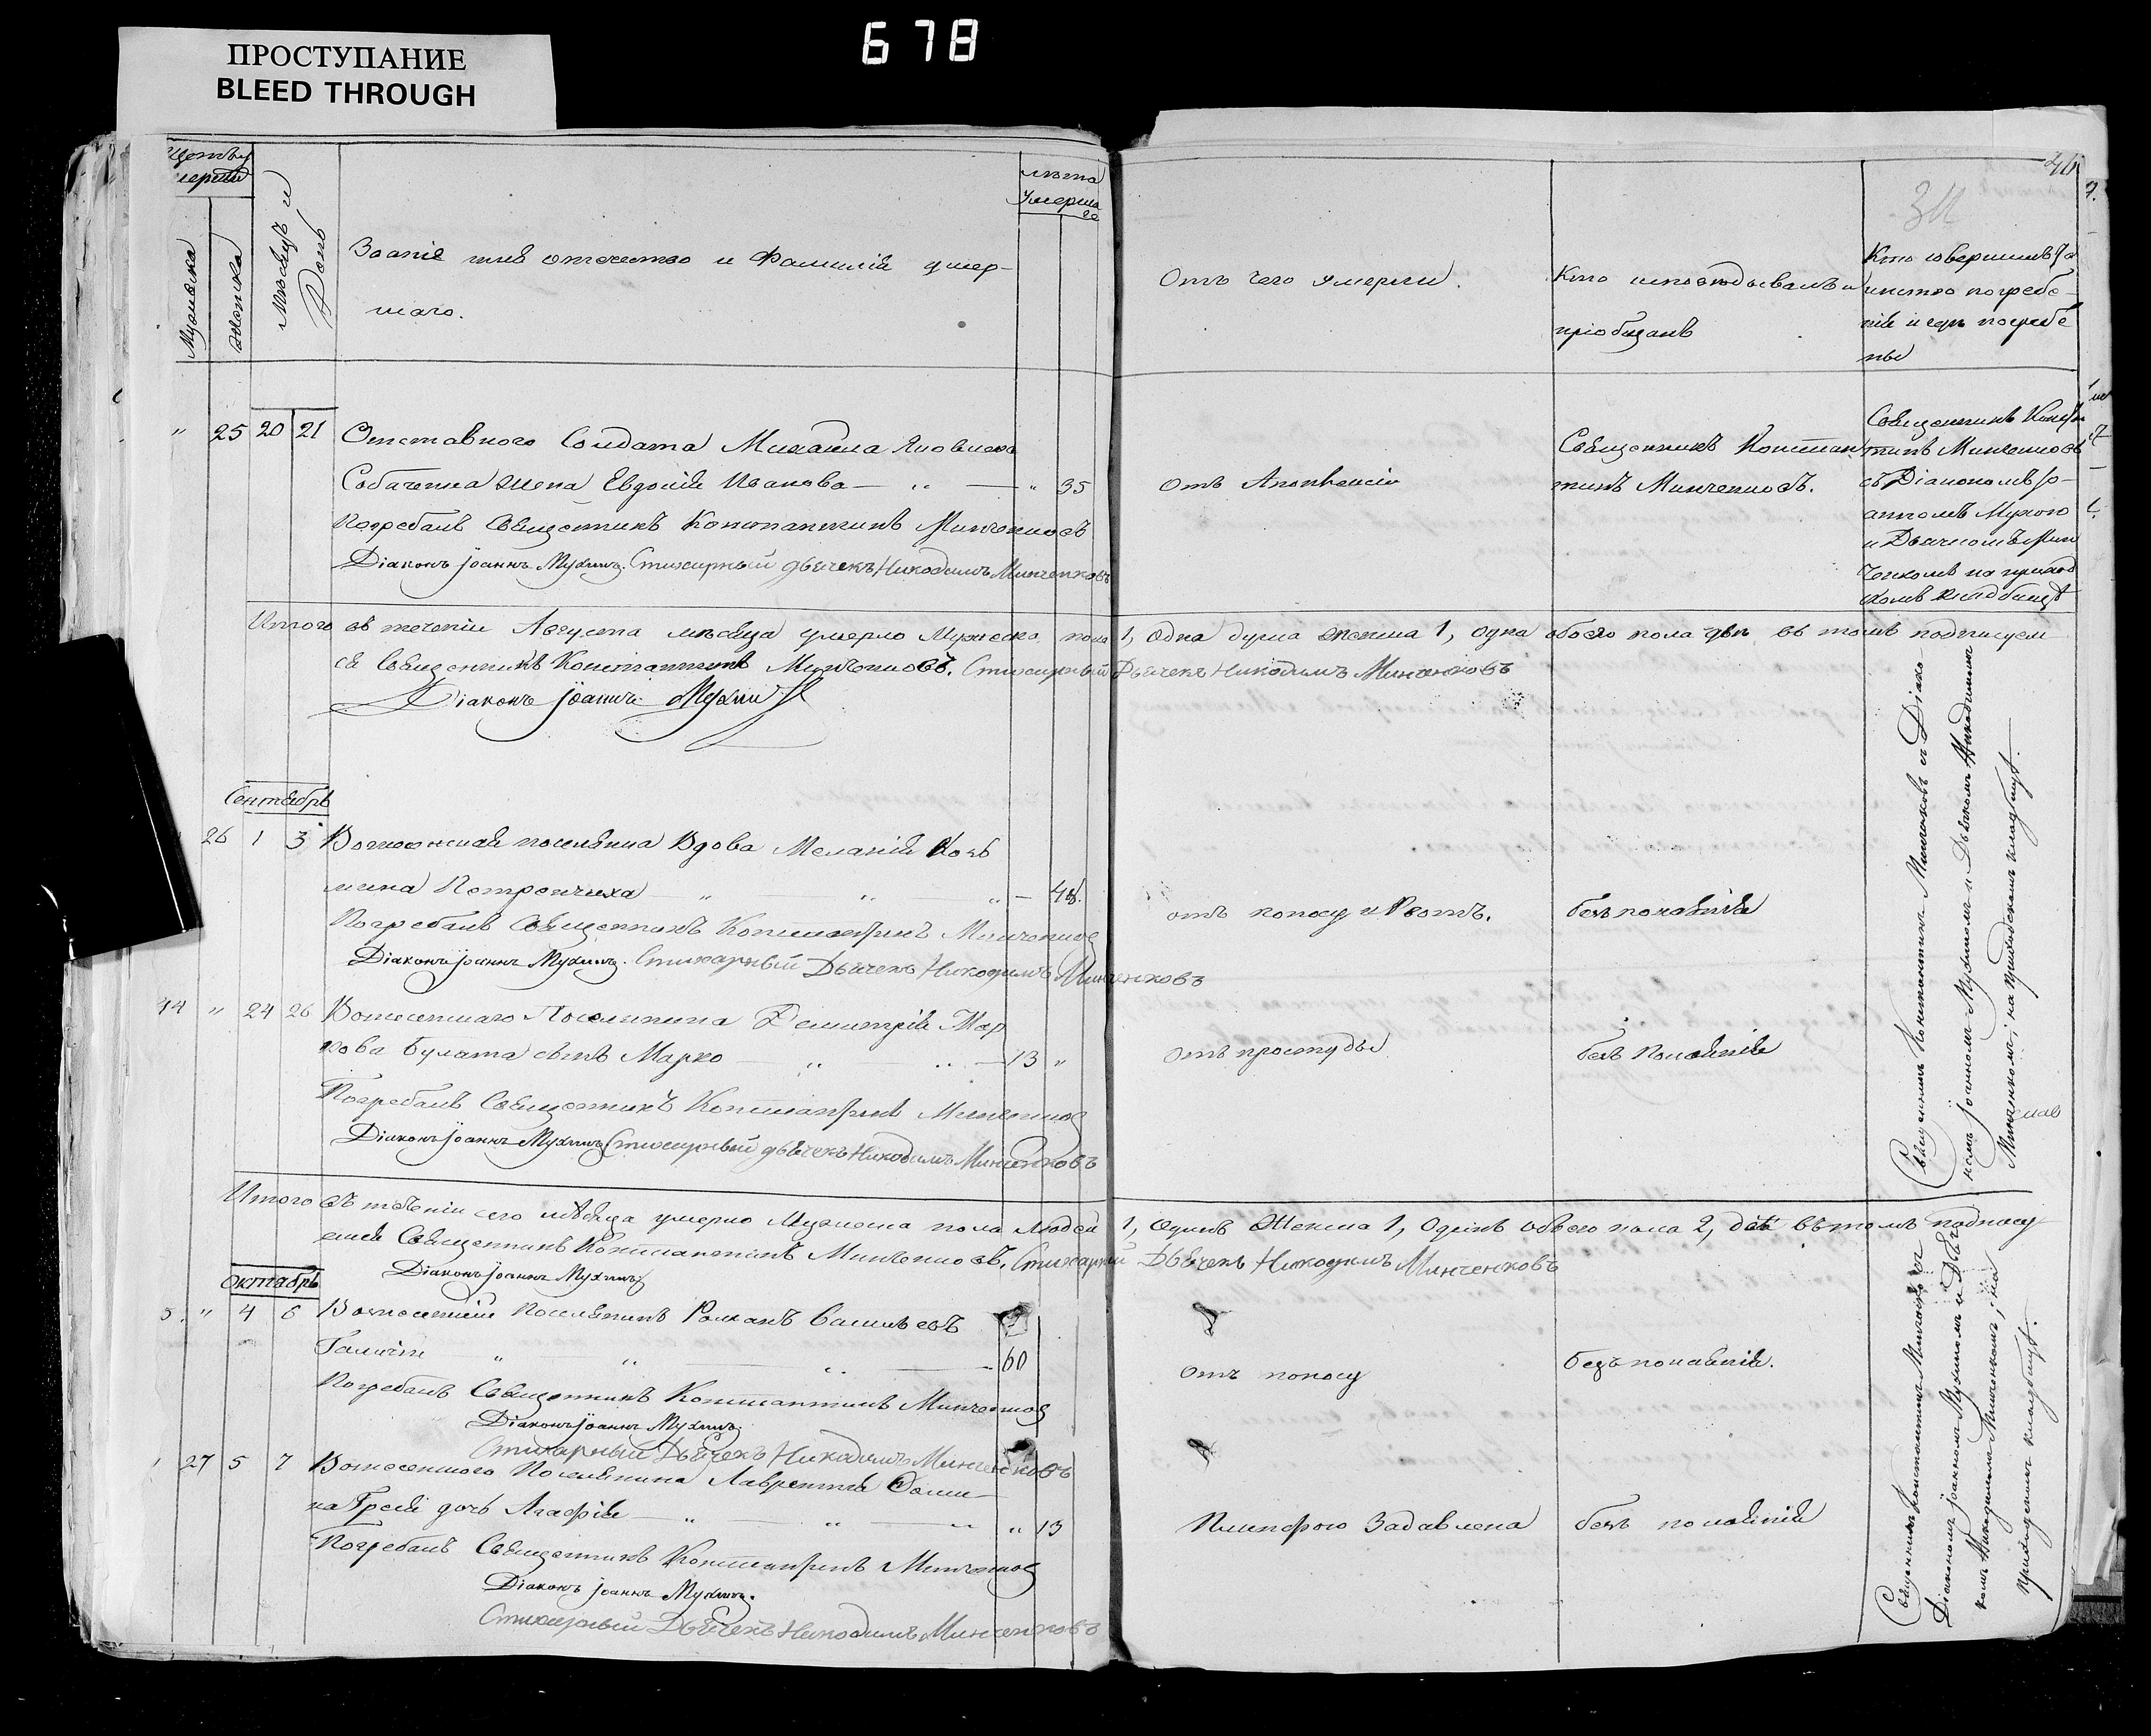 678
ПРОСТУПАНИЕ
BLEED THROUGH
Мужеска
Женска
Мѣсяцъ и
День
Званіе имя отечество и Фамилія умер-
шаго.
лѣта
Умерша
го
Отъ чего умерли.
Кто исповѣдывалъ и
пріобщалъ
Кто совершилъ та
инство погребе-
нія и гдѣ погребе
ны
" 25 20 21 Отставного Солдата Михаила
жена Евдокія Иванова — " — " 35
Погребалъ Священникъ Константинъ Минченковъ
Діаконъ Іоаннъ Мухинъ. Стихарный дьячекъ Никодимъ Минченковъ
Отъ
Священникъ Констан
тинъ Минченковъ.
Священникъ Конста
нтинъ Минченковъ
съ Діакономъ Іо-
анномъ Мухинымъ
и Дьячкомъ Мин
ченковымъ на приход
скомъ кладбищѣ
Итого въ теченіи Августа мѣсяца умерло Мужеска пола 1, одна душа женска 1, одна обоего пола двѣ въ томъ подписуем
ся Священникъ Константинъ Минченковъ. Стихарный Дьячекъ Никодимъ Минченковъ
Діаконъ Іоаннъ Мухинъ
Сентябрь
26 1 3 поселянка Вдова Меланія Козь
мина — " " " — 48.
Погребалъ Священникъ Константинъ Минченков
Діаконъ Іоаннъ Мухинъ. Стихарный Дьячекъ Никодимъ Минченковъ
отъ поносу и Рвотъ.
безъ покаянія
44 " 24 26 Поселянина Демитрія Мар
кова Булата сынъ Марко — " " — 13 "
Погребалъ Священникъ Константинъ Минченков
Діаконъ Іоаннъ Мухинъ Стихарный дьячекъ Никодимъ Минченковъ
Отъ простуды
безъ Покаянія
Священникъ Константинъ Минченковъ съ Діако-
номъ Іоанномъ Мухинымъ и Дьячкомъ Никодимомъ
Минченкомъ, на приходскомъ кладбищѣ.
Итого въ теченіи сего мѣсяца умерло Мужеска пола людей 1, Одинъ Женска 1, Одинъ обоего пола 2, двѣ въ томъ подпису
емся Священникъ Константинъ Минченковъ, Стихарный Дьячекъ Никодимъ Минченковъ
Діаконъ Іоаннъ Мухинъ
Октябрь
5. " 4 6 Поселянинъ Романъ Васильевъ
— " " " — 60
Погребалъ Священникъ Константинъ Минченков
Діаконъ Іоаннъ Мухинъ
Стихарный Дьячекъ Никодимъ Минченковъ
отъ поносу
безъ покаянія.
27 5 7 Поселянина Лаврентія
дочь Агафія — " " " " 13
Погребалъ Священникъ Константинъ Минченков
Діаконъ Іоаннъ Мухинъ.
Стихарный Дьячекъ Никодимъ Минченковъ
Задавлена
безъ покаянія
Священникъ Константинъ Минченко съ
Діакономъ Іоанномъ Мухинымъ и Дьяч
комъ Никодимомъ Минченкомъ, на
приходскомъ кладбищѣ.